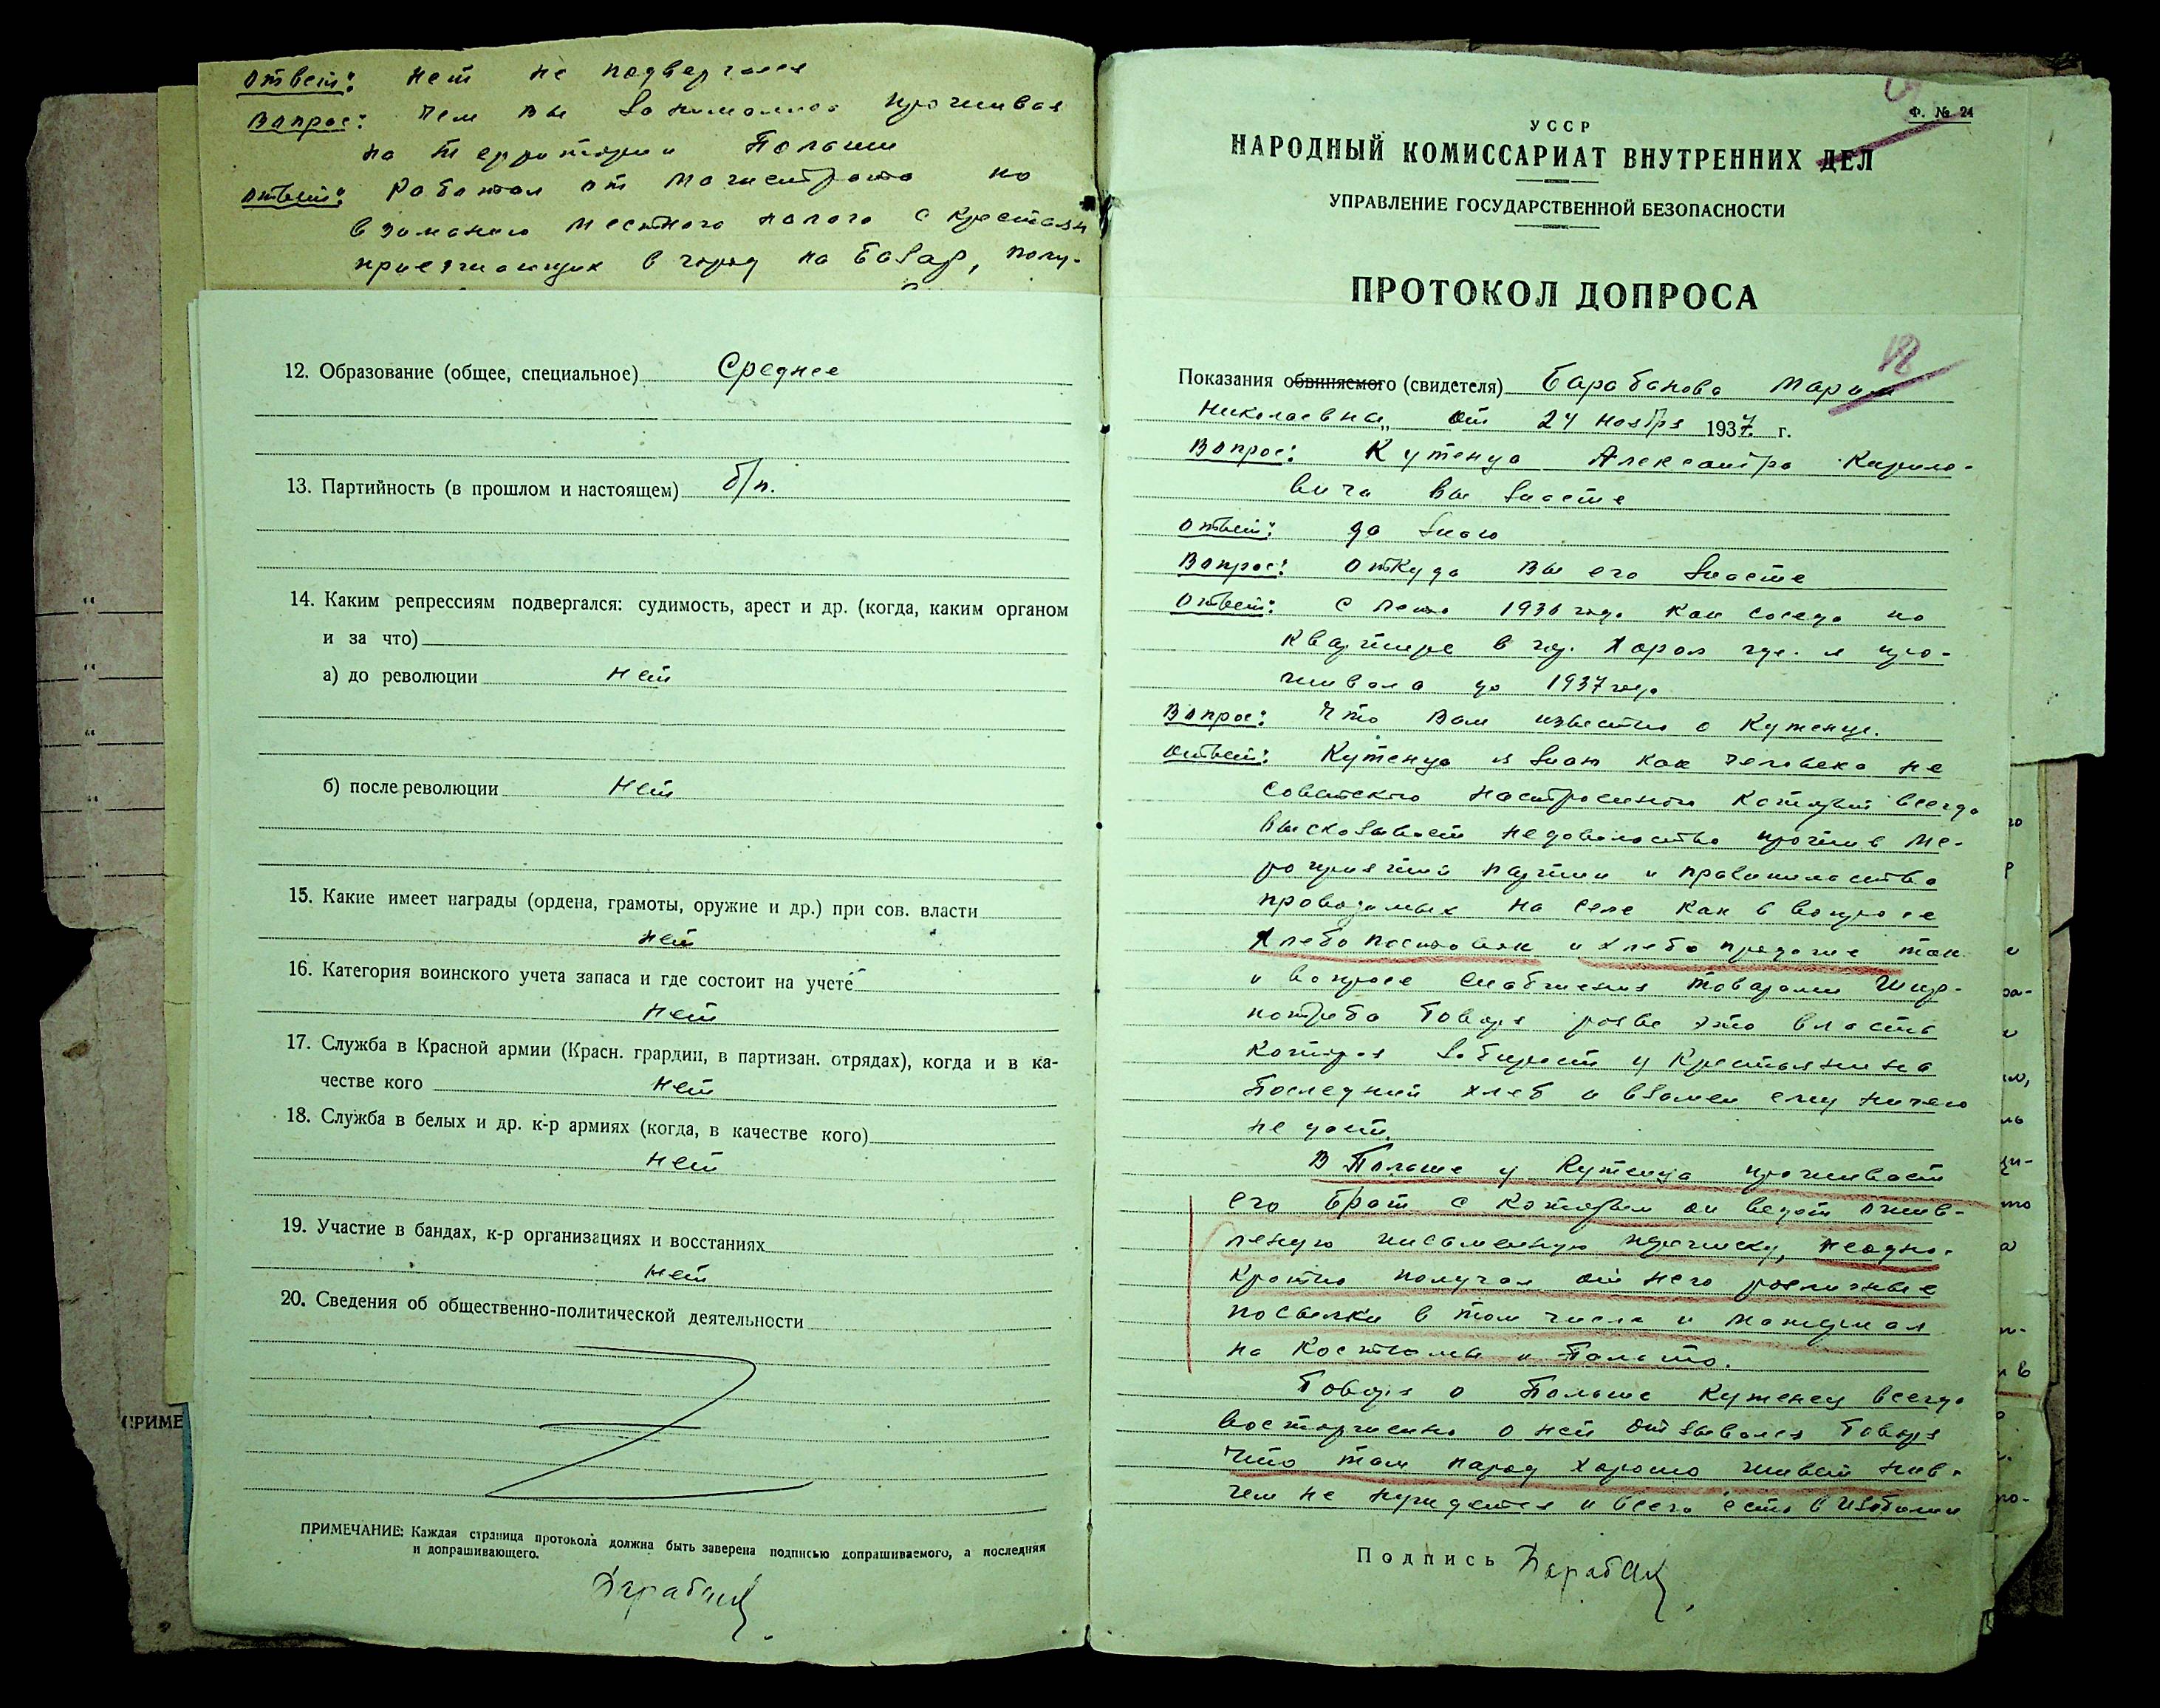 Ответ: нет не подвергался
Вопрос: Чем вы занимались проживая
на территории Польши
Ответ: Работал от магистрата по
взиманию местного налога с крестьян
приезжающих в город на базар, полу-
12. Образование (общее, специальное) Среднее
13. Партийность (в прошлом и настоящем) б/п.
14. Каким репрессиям подвергался: судимость, арест и др. (когда, каким органом
и за что)
а) до революции нет
б) после революции нет
15. Какие имеет награды (ордена, грамоты, оружие и др.) при сов. власти
нет
16. Категория воинского учета запаса и где состоит на учете
нет
17. Служба в Красной армии (Красн. грардии, в партизан. отрядах), когда и в ка-
честве кого нет
18. Служба в белых и др. к-р армиях (когда, в качестве кого)
нет
19. Участие в бандах, к-р организациях и восстаниях
нет
20. Сведения об общественно-политической деятельности
ПРИМЕЧАНИЕ: Каждая страница протокола должна быть заверена подписью допрашиваемого, а последняя
и допрашивающего.
ПРИМЕ
Ф. № 24
УССР
НАРОДНЫЙ КОМИССАРИАТ ВНУТРЕННИХ ДЕЛ
УПРАВЛЕНИЕ ГОСУДАРСТВЕННОЙ БЕЗОПАСНОСТИ
ПРОТОКОЛ ДОПРОСА
Показания обвиняемого (свидетеля) Барабанова Мария
Николаевна от 24 ноября 1937 г.
Вопрос: Кутенца Александра Кирило-
вича вы знаете
Ответ: да знаю
Вопрос: Откуда вы его знаете
Ответ: с лета 1936 года как соседа по
квартире в гор. Хорол где я про-
живала до 1937 года
Вопрос: Что вам известно о Кутенце.
Ответ: Кутенца я знаю как человека не
советского настроенного который всегда
высказывает недовольство против ме-
роприятий партии и правительства
проводимых на селе как в вопросе
хлебопоставок и хлебопродаже так
и вопросе снабжения товарами шир-
потреба говоря разве это власть
которая забирает у крестьянина
последний хлеб а взамен ему ничего
не дает.
В Польше у Кутенца проживает
его брат с которым он ведет ожив-
леную письменную переписку, неодно-
кратно получал от него различные
посылки в том числе и материал
на костюмы и пальто.
Говоря о Польше Кутенец всегда
восторженно о ней отзывался говоря
что там народ хорошо живет нив-
чем не нуждается и всего есть в изобилии
Подпись